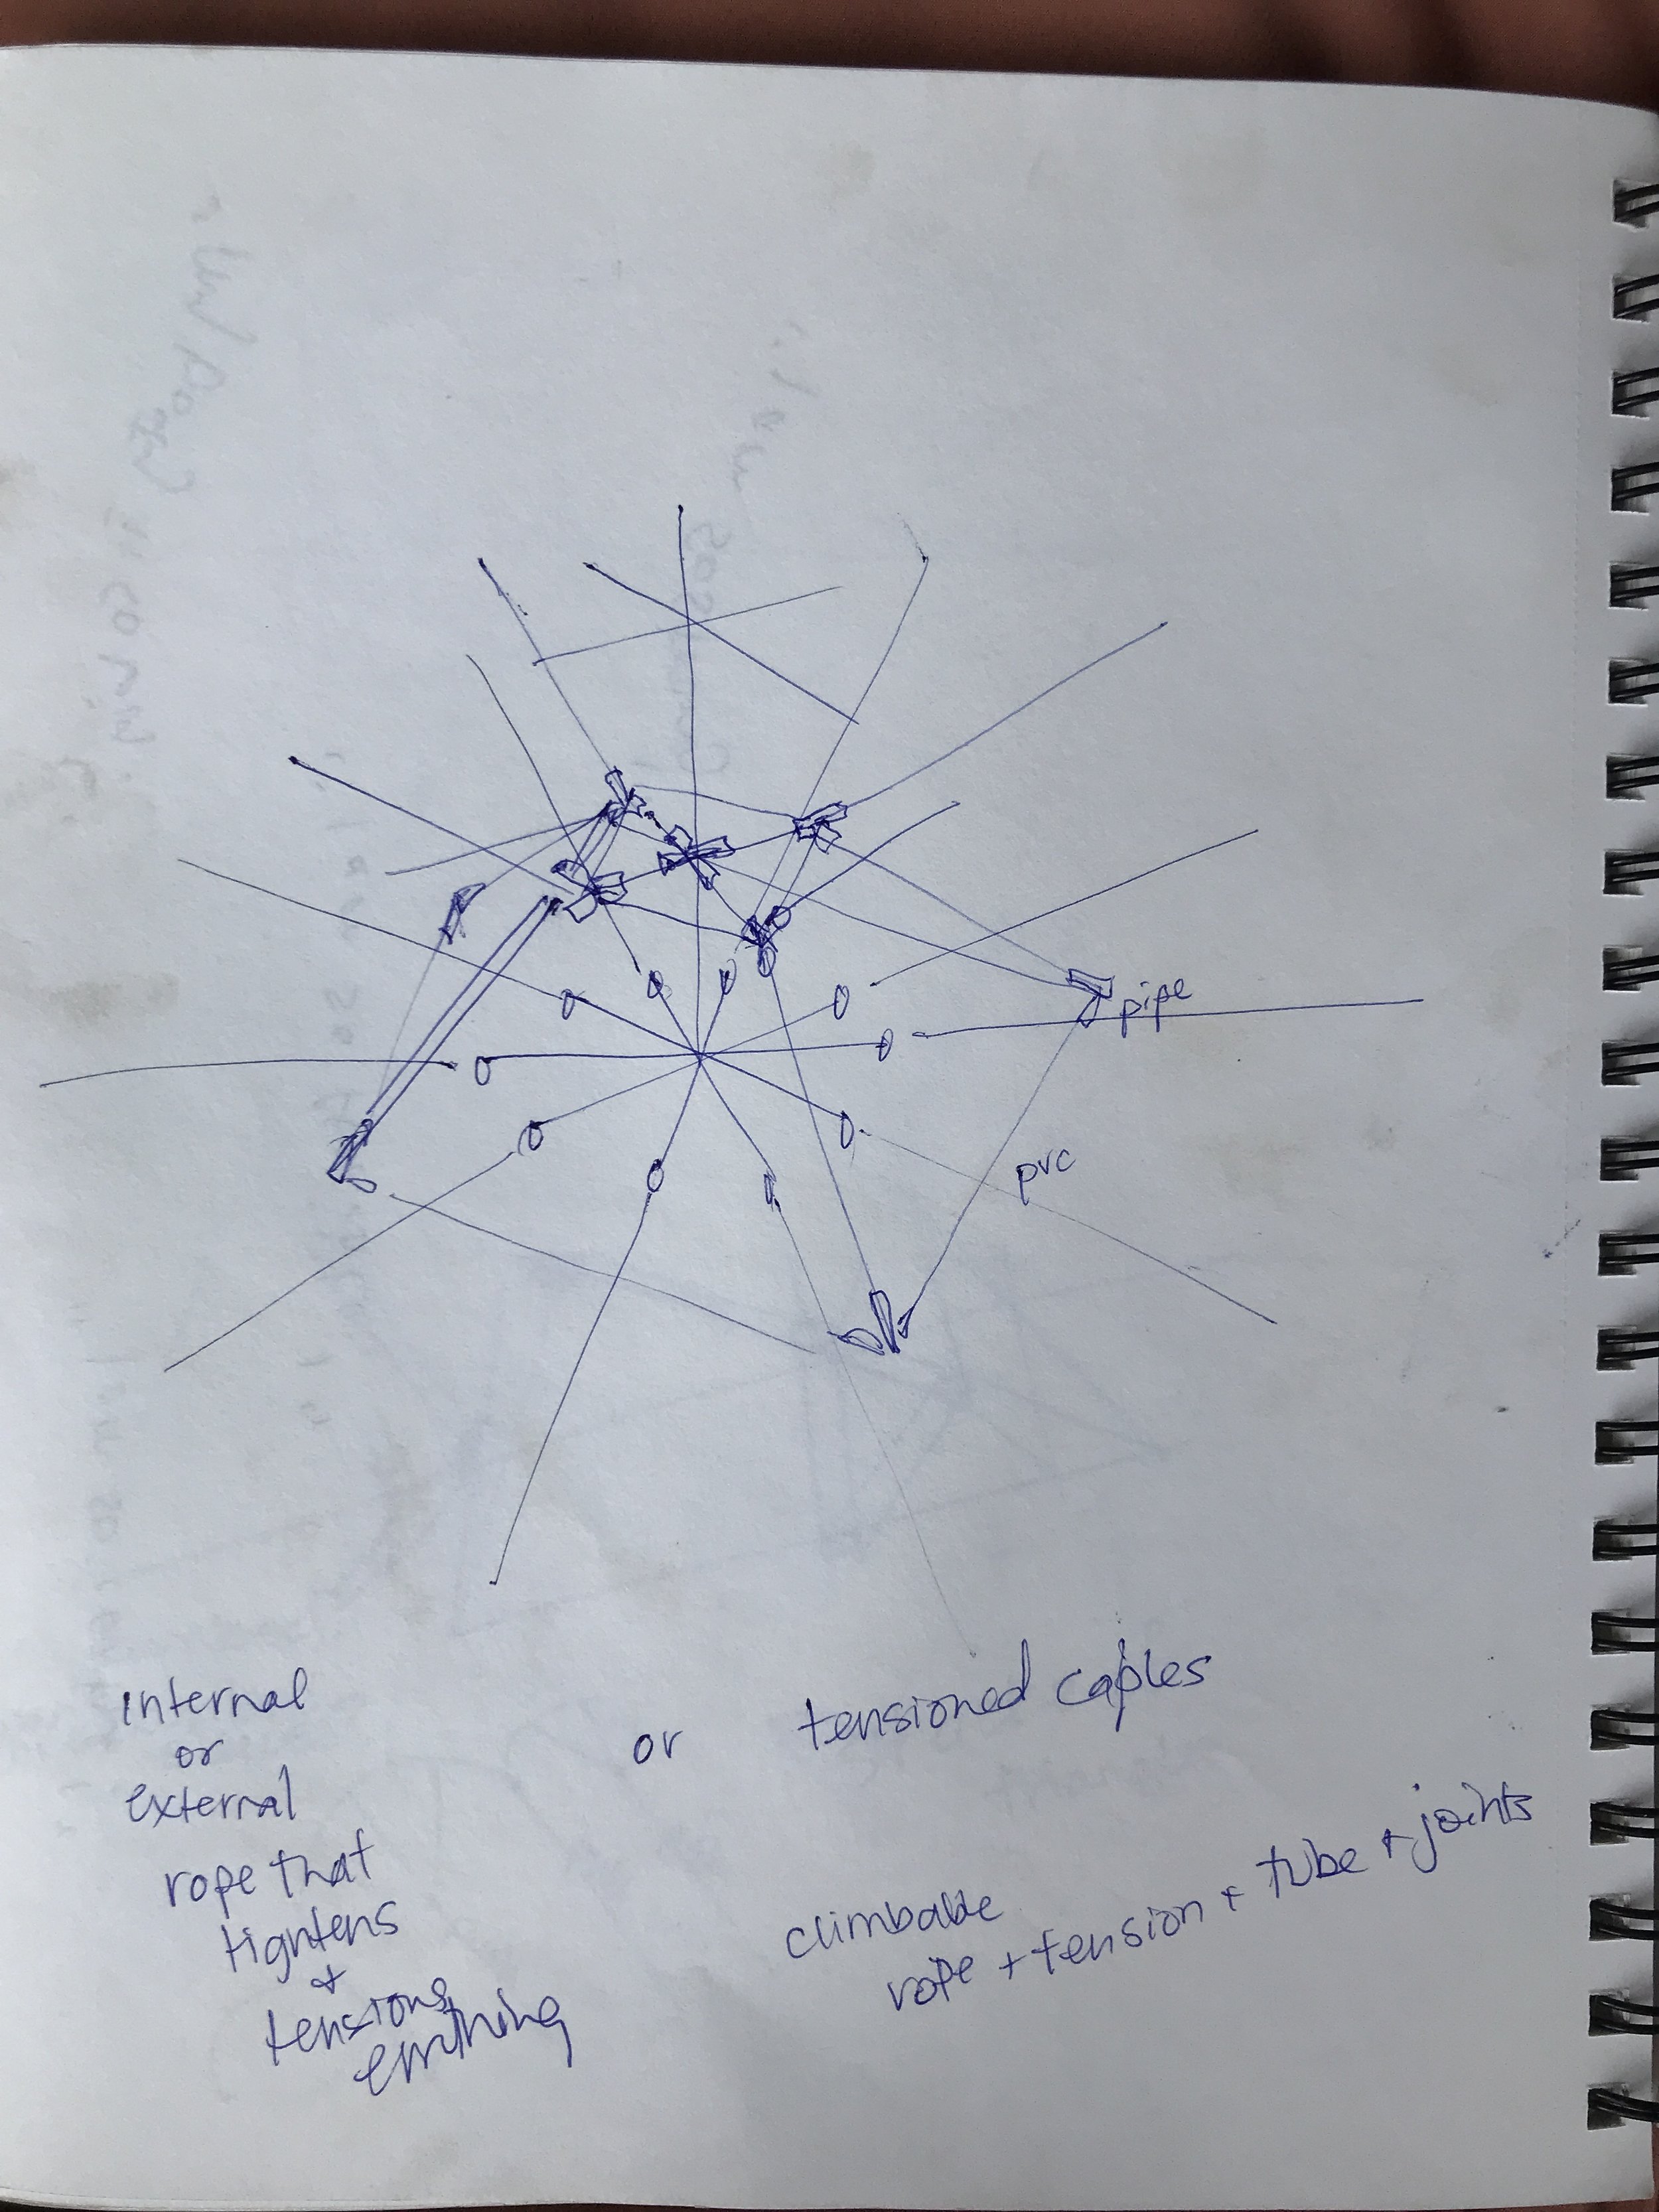 pipe
pvc
internal
or
external
rope that
tightens
+
tensions
everything
or
tensioned cables
climbable
rope + tension + tube + joints